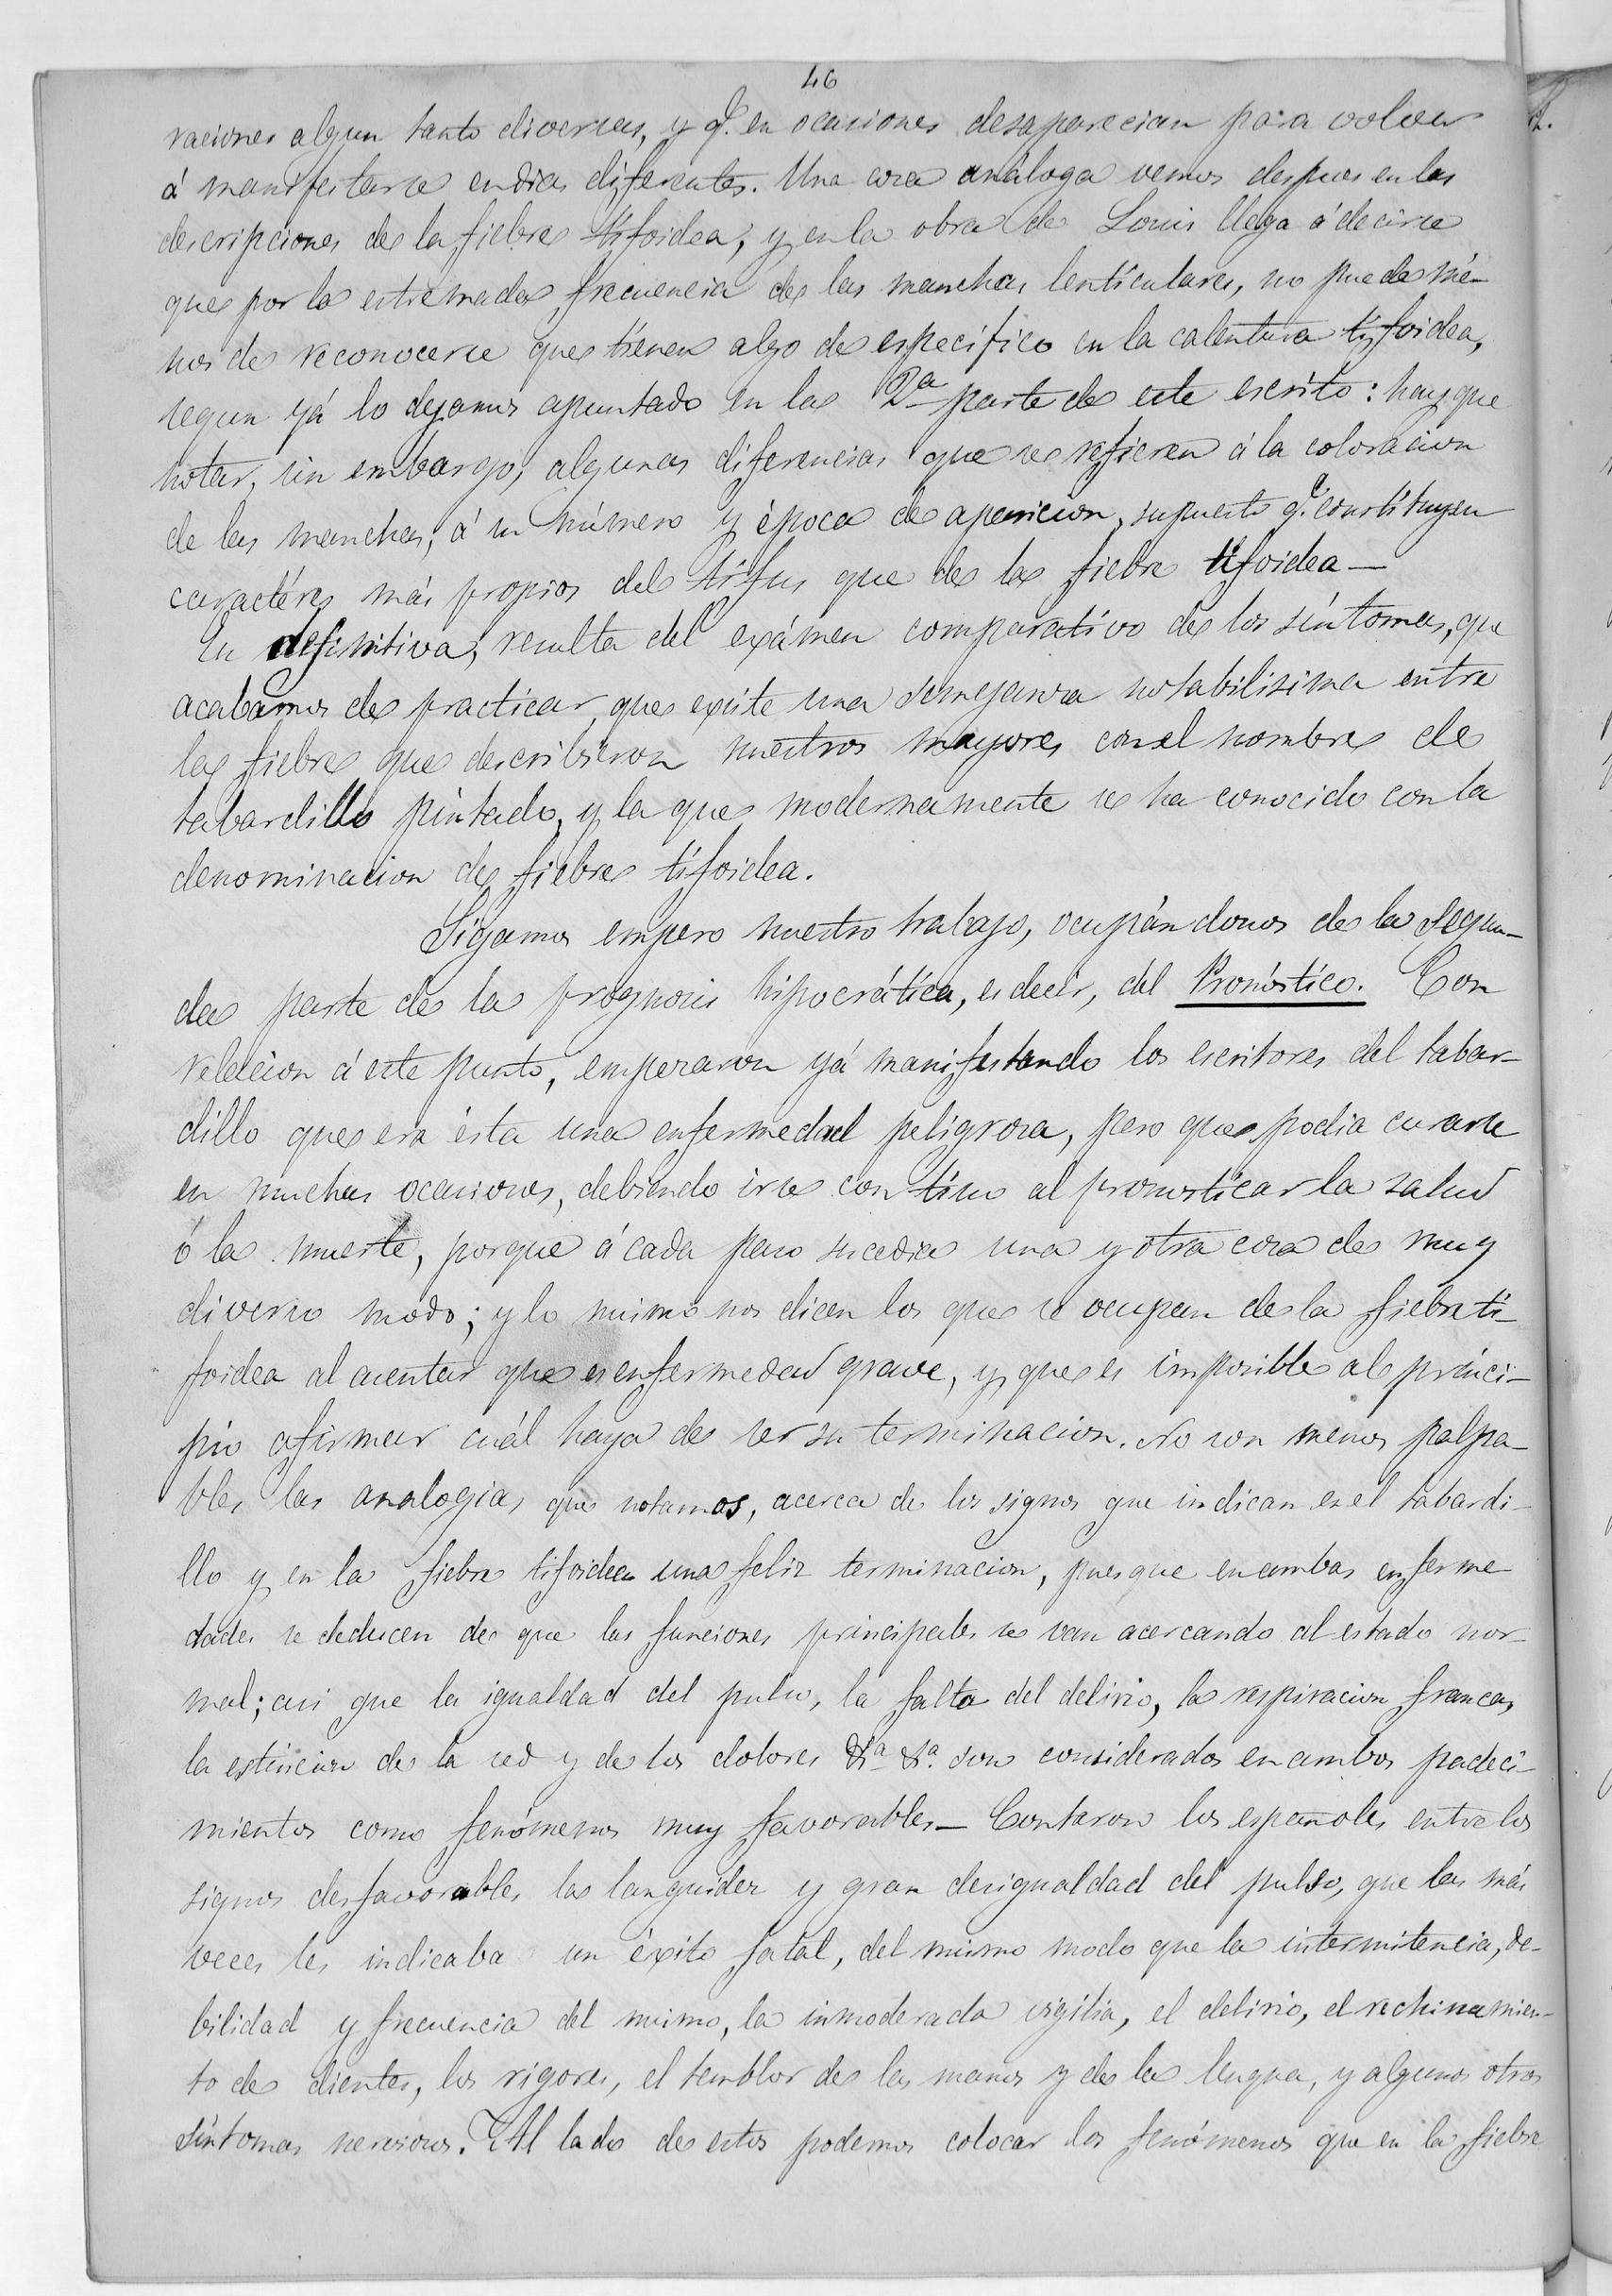 46
raciones algun tanto diversas, y q.e en ocasiones desaparecian para volver
á manifestarse en dias diferentes. Una cosa análoga vemos despues en las
descripciones de la fiebre tifoidea, y en la obra de Louis llega á decirse
que por la estremada frecuencia de las manchas lenticulares, no puede mé-
nos de reconocerse que tienen algo de específico en la calentura tifoidea,
segun yá lo dejamos apuntado en la 2.a parte de este escrito: hay que
notar, sin embargo, algunas diferencias que se refieren á la coloracion
de las manchas, á su número y época de aparicion, supuesto q.e constituyen
caractéres más propios del tífus que de la fiebre tifoidea—
En definitiva, resulta del exámen comparativo de los síntomas, que
acabamos de practicar, que existe una semejanza notabilisima entre
la fiebre que describieron nuestros mayores con el nombre de
tabardillo pintado, y la que modernamente se ha conocido con la
denominacion de fiebre tifoidea.
Sigamos empero nuestro trabajo, ocupándonos de la segun-
da parte de la prognosis hipocrática, es decir, del Pronóstico. Con
relacion á este punto, empezaron yá manifestando los escritores del tabar-
dillo que era ésta una enfermedad peligrosa, pero que podia curarse
en muchas ocasiones, debiendo irse con tino al pronosticar la salud
ó la muerte, porque á cada paso sucedia una y otra cosa de muy
diverso modo; y lo mismo nos dicen los que se ocupan de la fiebre ti-
foidea al asentar que es enfermedad grave, y que es imposible al princi-
pio afirmar cuál haya de ser su terminacion. No son menos palpa-
bles las analogias que notamos, acerca de los signos que indican en el tabardi-
llo y en la fiebre tifoidea una feliz terminacion, pues que en ambas enferme-
dades se deducen de que las funciones principales se van acercando al estado nor-
mal; asi que la igualdad del pulso, la falta del delirio, la respiracion franca,
la estincion de la sed y de los dolores &.a &.a son considerados en ambos padeci-
mientos como fenómenos muy favorables— Contaron los españoles entre los
signos desfavorables la languidez y gran desigualdad del pulso, que las más
veces les indicaba un éxito fatal, del mismo modo que la intermitencia, de-
bilidad y frecuencia del mismo, la inmoderada vigilia, el delirio, el rechinamien-
to de dientes, los rigores, el temblor de las manos y de la lengua, y algunos otros
síntomas nerviosos. Al lado de estos podemos colocar los fenómenos que en la fiebre